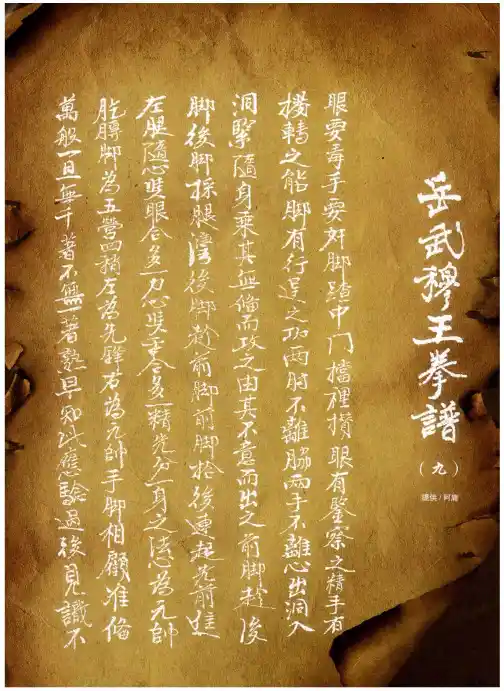 岳武穆王拳譜
(九)
提供/阿庸
眼要毒手要奸脚踏中门擋裡攅眼有鑒察之精手有
撥轉之能脚有行逞之功两肘不離脇兩手不離心出洞入
洞緊隨身乘其無備而攻之由其不意而出之前脚趁後
脚後脚採腿後脚趁前脚前脚搶後連起先前進
左腿隨心雙眼合多一力心雙手合多一精先分一身之法心為元帥
肐膊脚為五營四稍左為先鋒右為元帥手脚相顧准備
萬般一旦無千著不無一著熟早知此應驗過後見識不